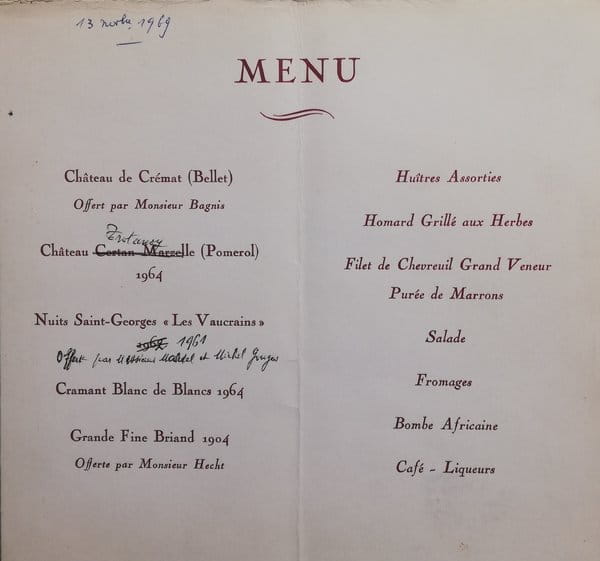 13 novbre 1969
MENU
Château de Crémat (Bellet)
Offert par Monsieur Bagnis
Trotanoy
Château Certan Marzelle (Pomerol)
1964
Nuits Saint-Georges « Les Vaucrains »
1961
Offert par Messieurs et Michel Gouges
Cramant Blanc de Blancs 1964
Grande Fine Briand 1904
Offerte par Monsieur Hecht
Huîtres Assorties
Homard Grillé aux Herbes
Filet de Chevreuil Grand Veneur
Purée de Marrons
Salade
Fromages
Bombe Africaine
Café - Liqueurs